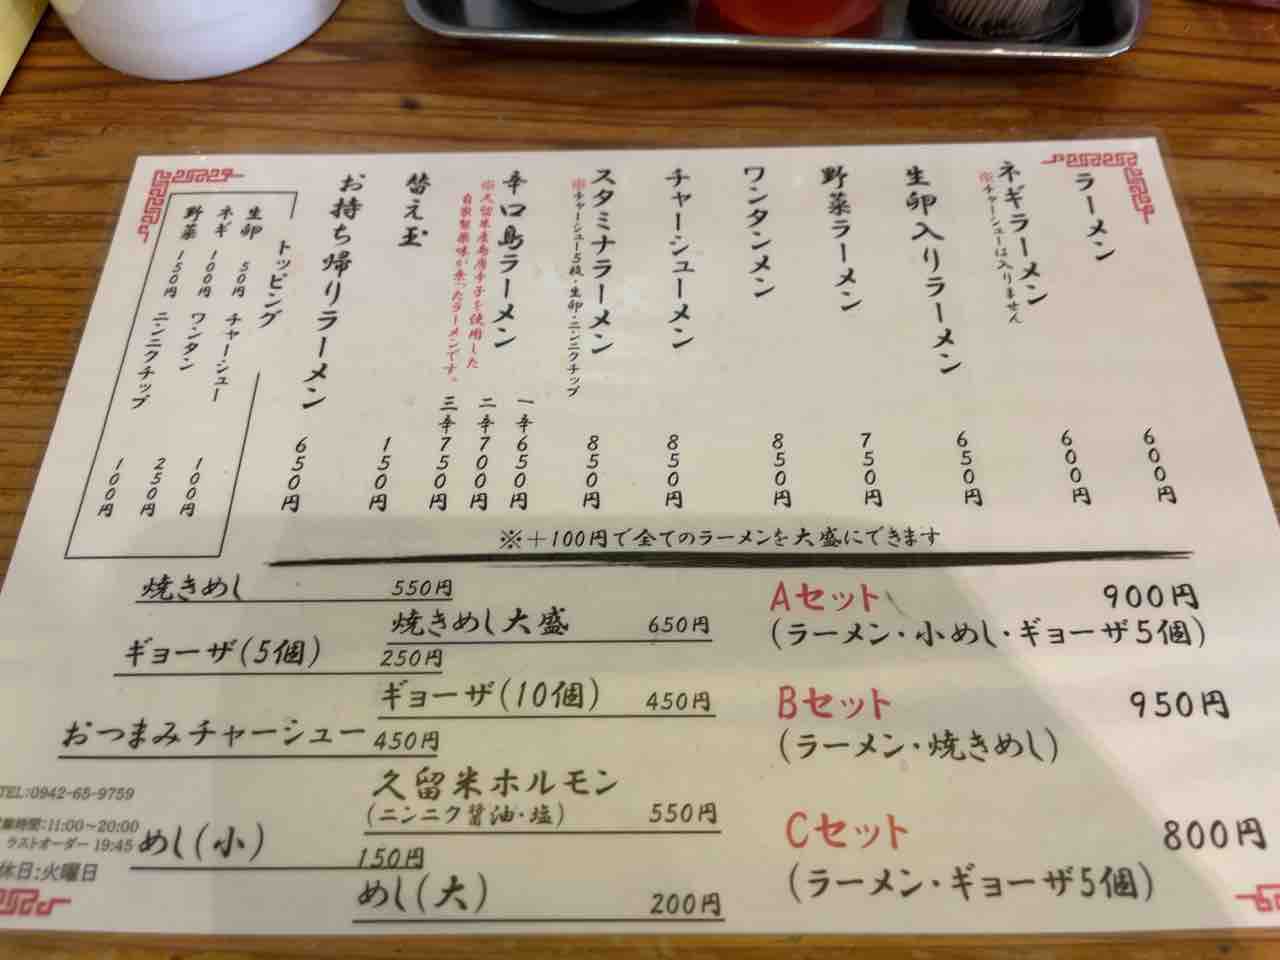 ラーメン 600円
ネギラーメン 600円
※チャーシューは入りません
生卵入りラーメン 650円
野菜ラーメン 750円
ワンタンメン 850円
チャーシューメン 850円
スタミナラーメン 850円
※チャーシュー5枚・生卵・ニンニクチップ
辛口島ラーメン
一辛 650円
二辛 700円
三辛 750円
※久留米産島唐辛子を使用した
自家製薬味が乗ったラーメンです。
替え玉 150円
お持ち帰りラーメン 650円
トッピング
生卵 50円
ネギ 100円
野菜 150円
チャーシュー 100円
ワンタン 250円
ニンニクチップ 100円
※+100円で全てのラーメンを大盛にできます
焼きめし 550円
焼きめし大盛 650円
ギョーザ(5個) 250円
ギョーザ(10個) 450円
おつまみチャーシュー 450円
久留米ホルモン
(ニンニク醤油・塩) 550円
めし(小) 150円
めし(大) 200円
Aセット 900円
(ラーメン・小めし・ギョーザ5個)
Bセット 950円
(ラーメン・焼きめし)
Cセット 800円
(ラーメン・ギョーザ5個)
TEL:0942-65-9759
業時間:11:00~20:00
ラストオーダー 19:45
休日:火曜日